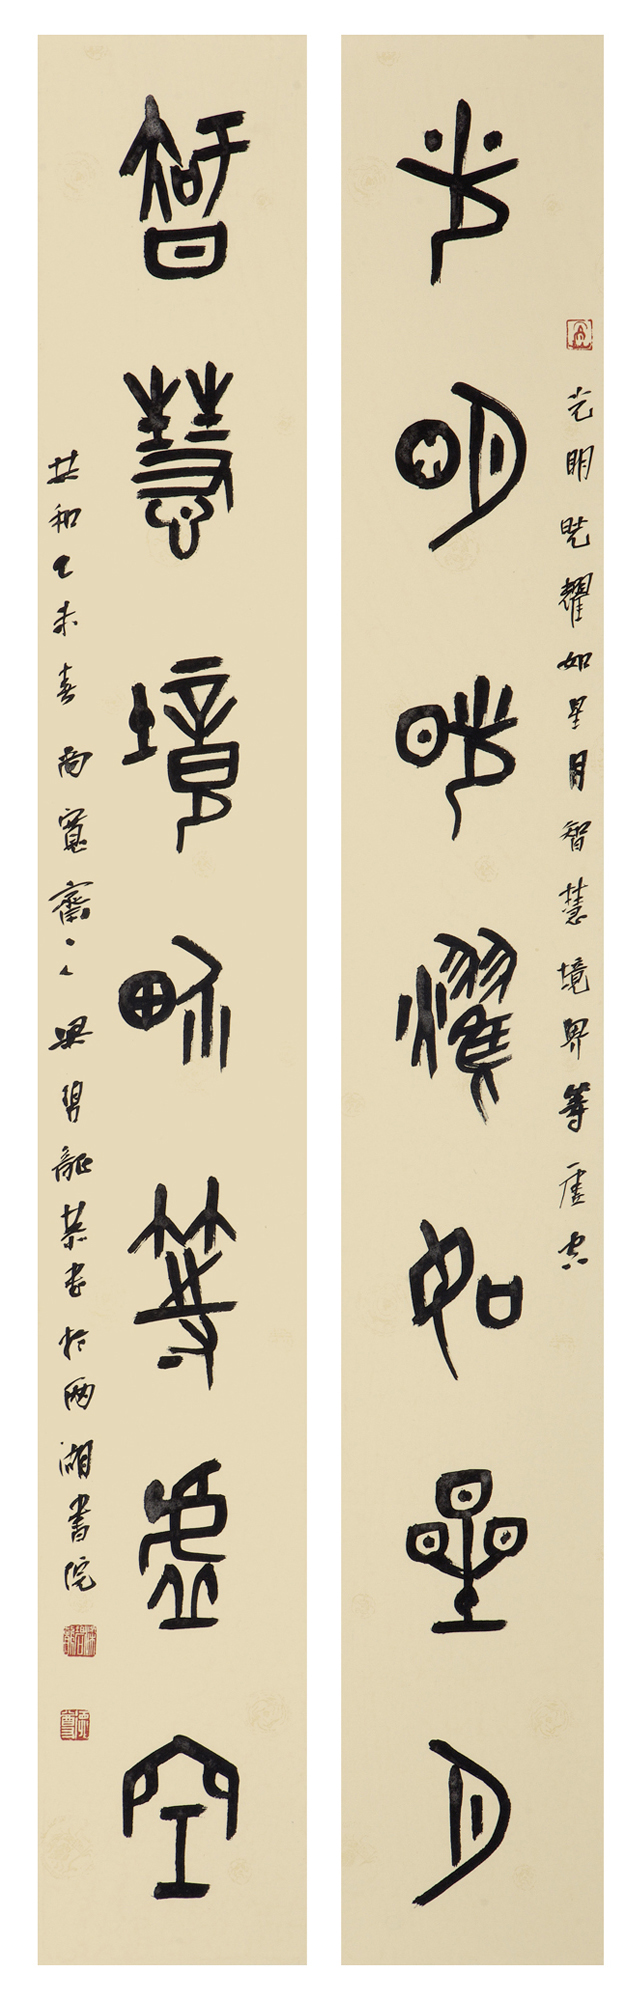 光明晄耀如星月
光明晄耀如星月智慧境界等虚空
智慧境界等虚空
共和乙未春两宽斋主人梁碧龍恭书於两湖書院